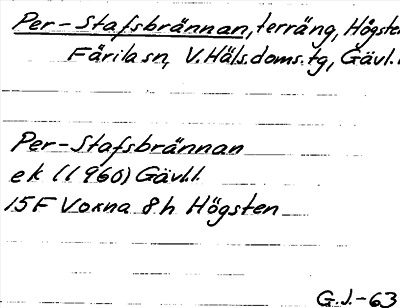 Per-Stafsbrännan, terräng, Högsten
Färila sn, V. Häls. doms. tg, Gävl.
Per-Stafsbrännan
ek (1960) Gävl.l.
15F Voxna 8h Högsten
G.J.-63